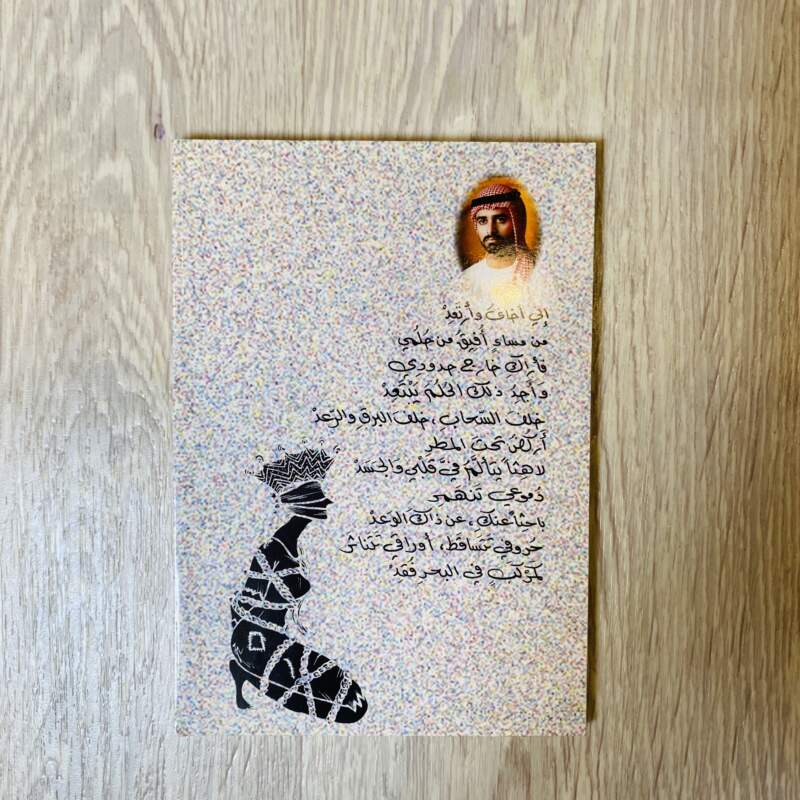 إني أخافُ وأرتَعِدْ
من مساءٍ أُفيقُ من حُلُمي
فأراكَ خارجَ حدودي
وأجدُ ذلكَ الحُلمَ يَبْتَعِدْ
خلفَ السّحابِ، خلفَ البرقِ والرّعدْ
أركضُ تحتَ المطرِ
لاهِثاً يتألَّمُ في قلبي والجَسَدْ
دُموعي تَنهَمِر
باحِثاً عنكِ، عن ذاكَ الوَعدْ
حُروفي تتساقطُ، أوراقي تَتَناثر
كمَركبٍ في البحرِ فُقِدْ